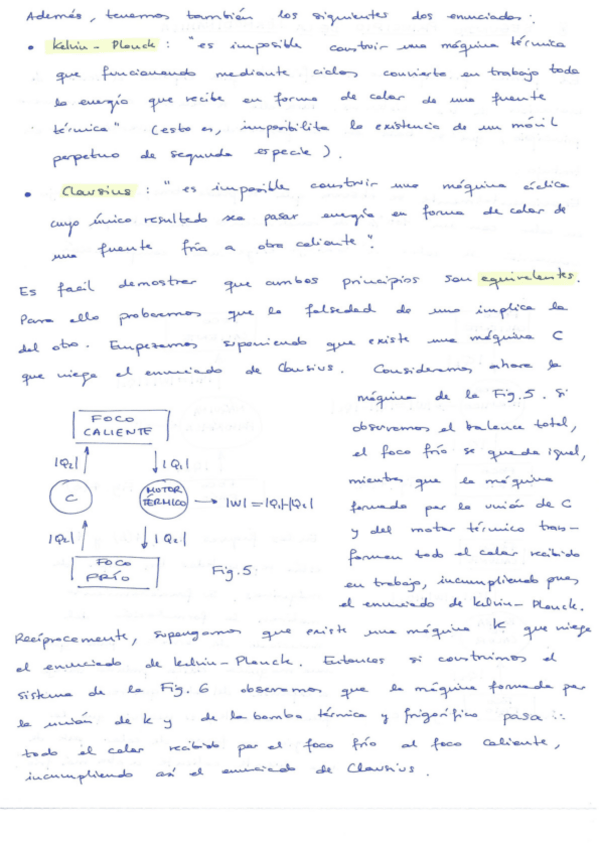 Además, tenemos también los siguientes dos enunciados:
• Kelvin-Planck : "es imposible construir una máquina térmica
que funcionando mediante ciclos convierta en trabajo toda
la energía que recibe en forma de calor de una fuente
térmica" (esto es, imposibilita la existencia de un móvil
perpetuo de segunda especie).
• Clausius : "es imposible construir una máquina cíclica
cuyo único resultado sea pasar energía en forma de calor de
una fuente fría a otra caliente".
Es facil demostrar que ambos principios son equivalentes.
Para ello probaremos que la falsedad de uno implica la
del otro. Empezamos suponiendo que existe una máquina C
que niega el enunciado de Clausius. Consideramos ahora la
máquina de la Fig. 5. Si
observamos el balance total,
el foco frío se queda igual,
mientras que la máquina
formada por la unión de C
y del motor térmico trans-
forman todo el calor recibido
en trabajo, incumpliendo pues
el enunciado de Kelvin-Planck.
FOCO
CALIENTE
|Q2| |Q1|
C
MOTOR
TÉRMICO
|W|=|Q1|-|Q2|
|Q2| |Q2|
FOCO
FRÍO
Fig. 5
Recíprocamente, supongamos que existe una máquina K que niega
el enunciado de Kelvin-Planck. Entonces si construimos el
sistema de la Fig. 6 observamos que la máquina formada por
la unión de K y de la bomba térmica y frigorífico pasa ::
todo el calor recibido por el foco frío al foco caliente,
incumpliendo así el enunciado de Clausius.